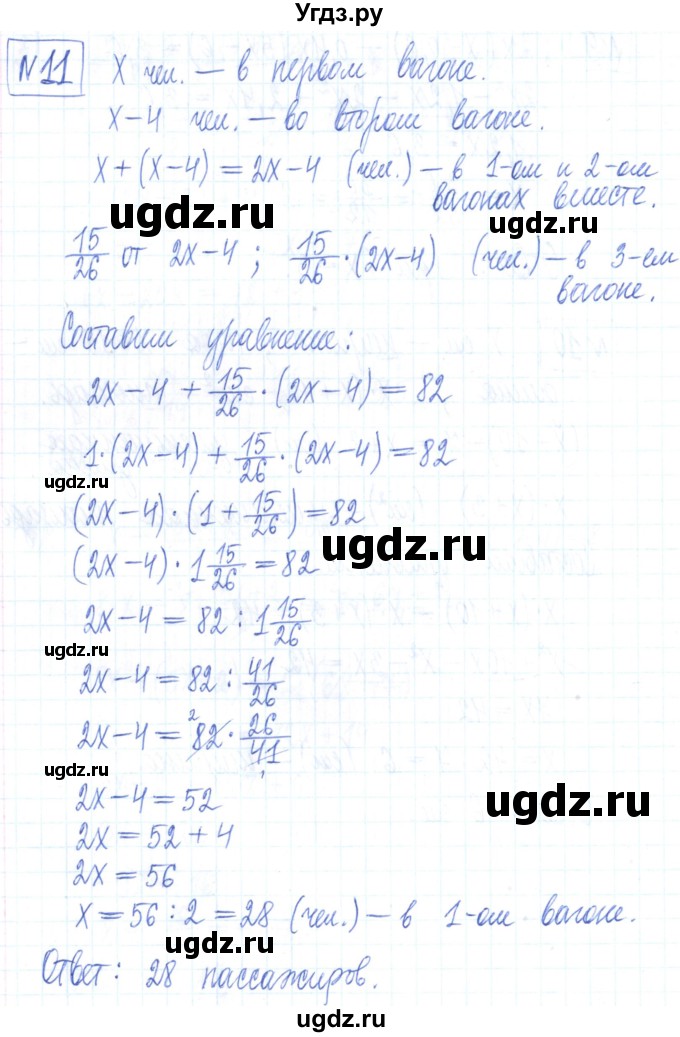 Угдз.ру
№11 x чел. — в первом вагоне.
x−4 чел. — во втором вагоне.
x+(x−4)=2x−4 (чел.) — в 1-ом и 2-ом
вагонах вместе.
ugdz.ru ugdz.ru
15/26 от 2x−4; 15/26·(2x−4) (чел.) — в 3-ем
вагоне.
Составим уравнение:
2x−4+15/26·(2x−4)=82
1·(2x−4)+15/26·(2x−4)=82
ugdz.ru
(2x−4)·(1+15/26)=82
ugdz.ru
(2x−4)·1 15/26=82
2x−4=82:1 15/26
ugdz.ru
2x−4=82:41/26
2x−4=²82·26/41₁
ugdz.ru
2x−4=52
ugdz.ru
2x=52+4
2x=56
x=56:2=28 (чел.) — в 1-ом вагоне.
ugdz.ru
Ответ: 28 пассажиров.
ugdz.ru